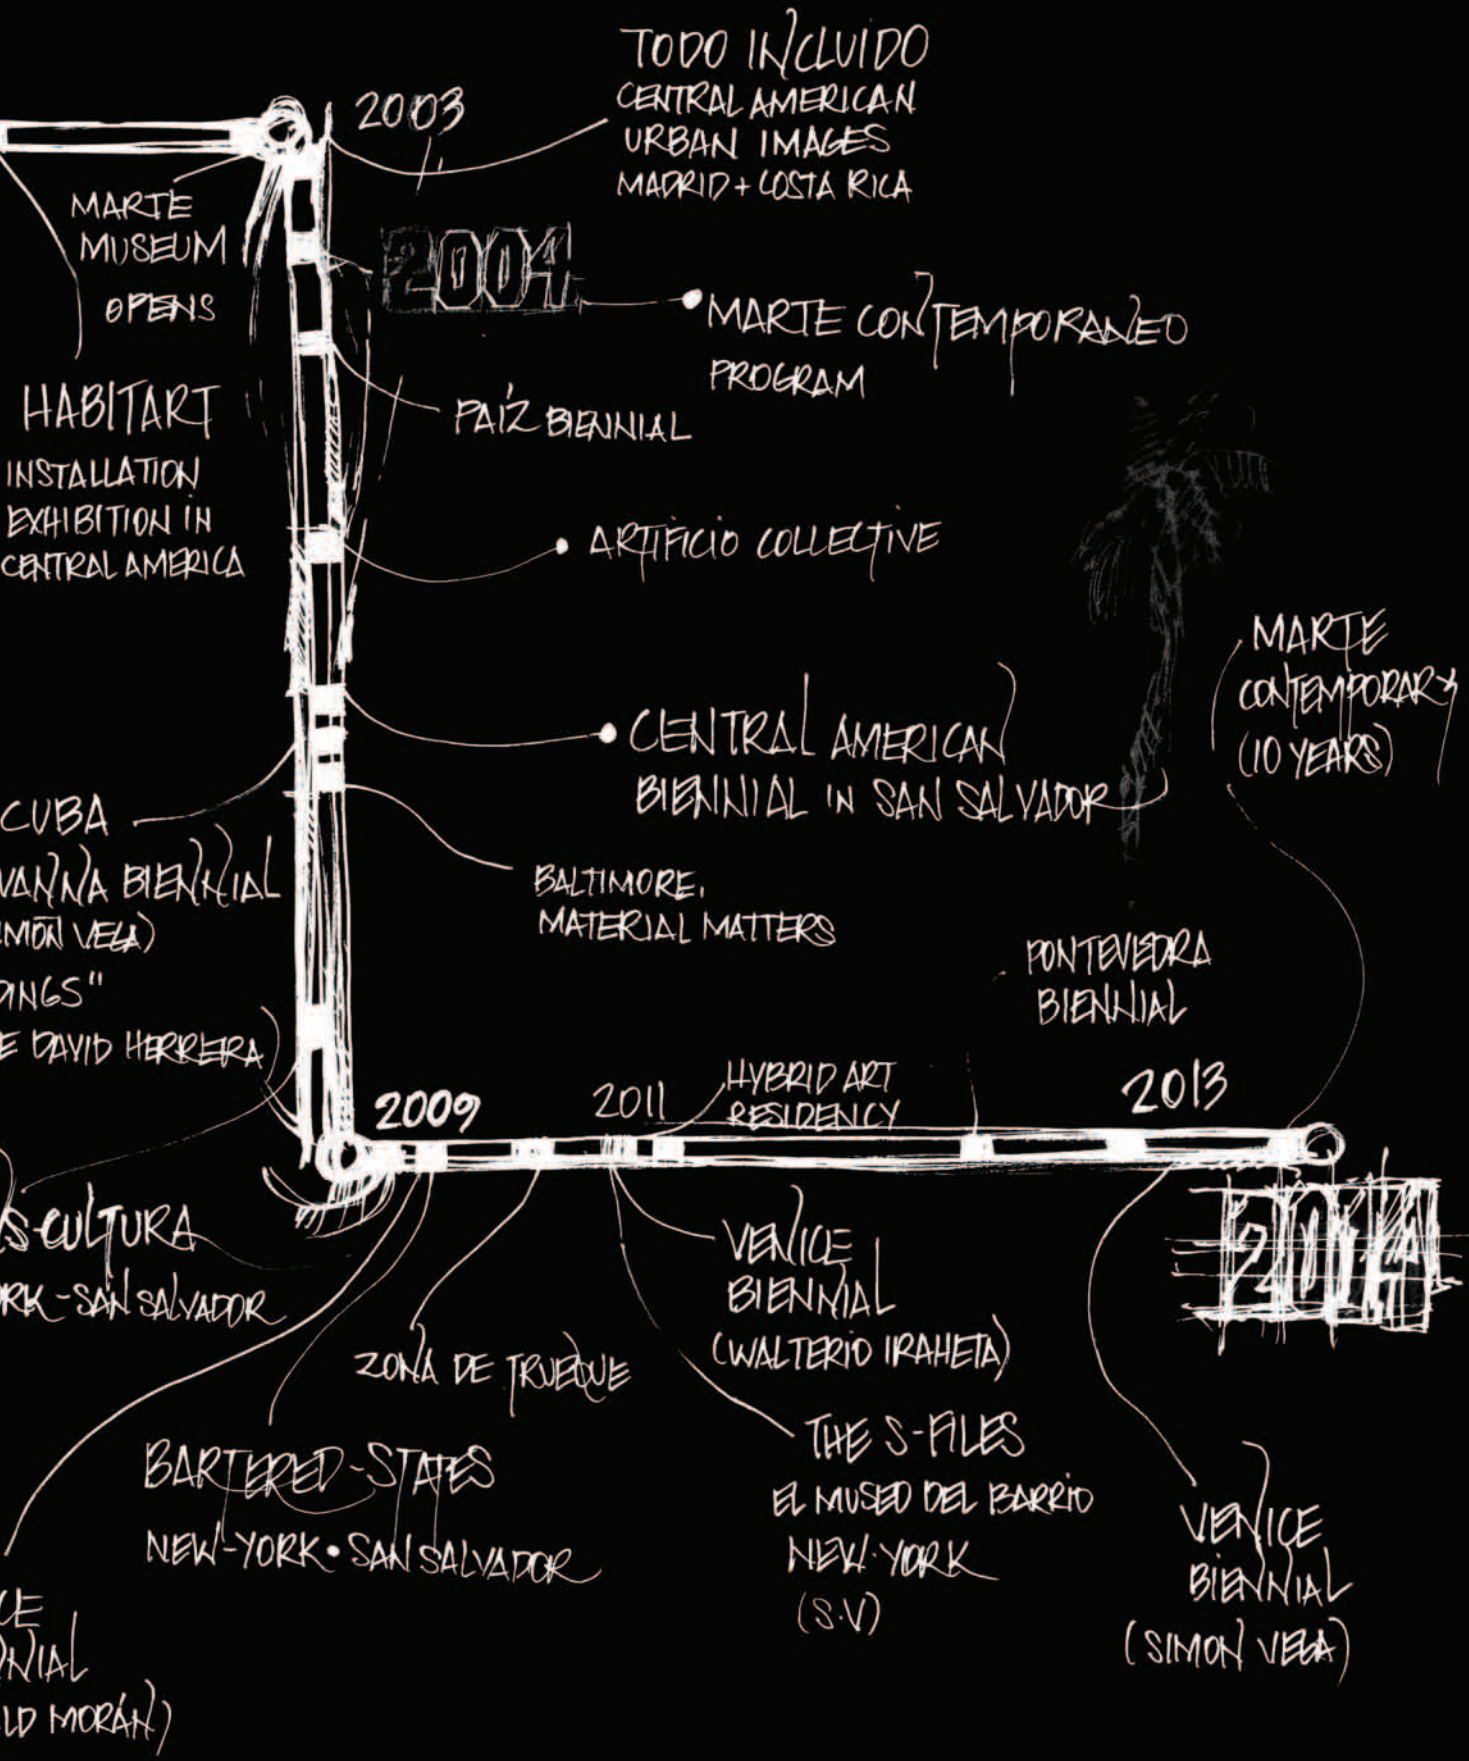 2003
TODO INCLUIDO
CENTRAL AMERICAN
URBAN IMAGES
MADRID + COSTA RICA
MARTE
MUSEUM
OPENS
2004
MARTE CONTEMPORANEO
PROGRAM
HABITART
INSTALLATION
EXHIBITION IN
CENTRAL AMERICA
PAÍZ BIENNIAL
ARTIFICIO COLLECTIVE
MARTE
CONTEMPORARY
(10 YEARS)
CENTRAL AMERICAN
BIENNIAL IN SAN SALVADOR
CUBA
VANNA BIENNIAL
MÓN VEGA)
DINGS"
E DAVID HERRERA
BALTIMORE.
MATERIAL MATTERS
PONTEVEDRA
BIENNIAL
2009
2011
HYBRID ART
RESIDENCY
2013
2014
S-CULTURA
ORK - SAN SALVADOR
VENICE
BIENNIAL
(WALTERIO IRAHETA)
ZONA DE TRUEQUE
BARTERED-STATES
NEW-YORK • SAN SALVADOR
THE S-FILES
EL MUSEO DEL BARRIO
NEW-YORK
(S.V)
VENICE
BIENNIAL
(SIMON VEGA)
CE
NNIAL
LD MORÁN)